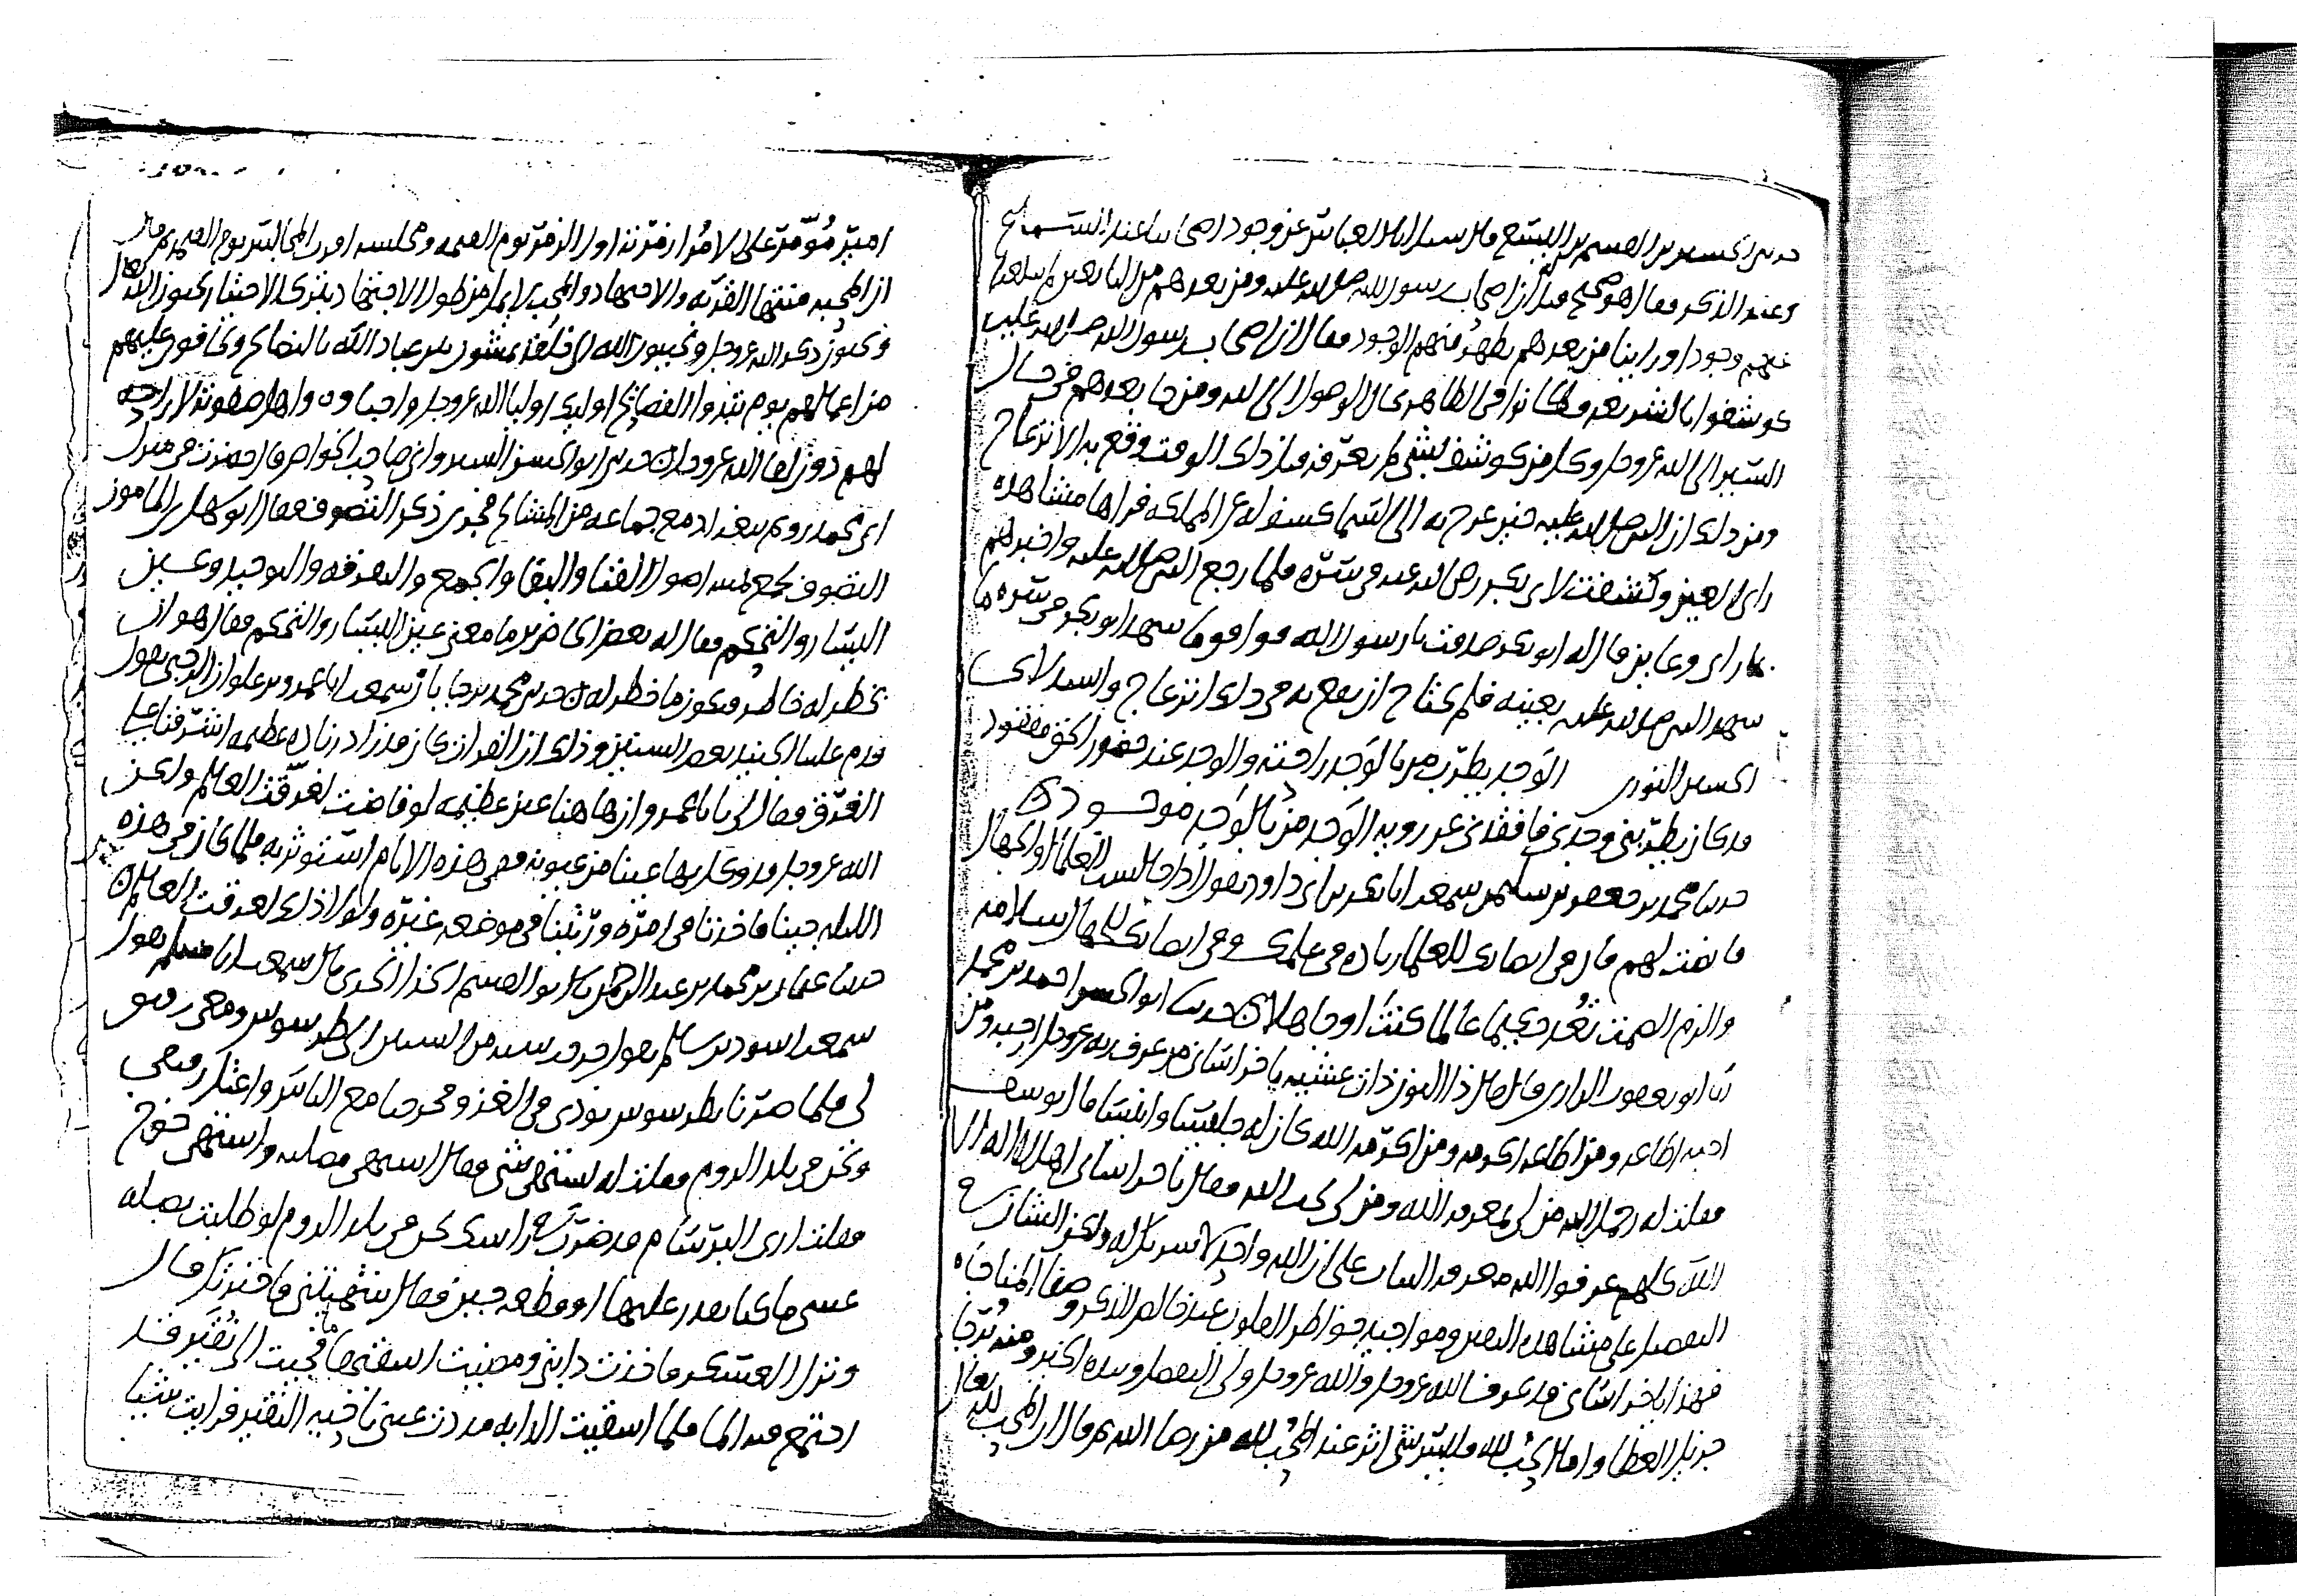 حدثني الحسين بن القسم بن اليسع قال سئل ابو العباس عن وجود اصحابنا عند السماع
وعند الذكر فقال هو صحيح قيل ان اصحاب رسول الله صلى الله عليه ومن بعدهم من التابعين لم يبلغنا
عنهم وجود اورأينا من بعدهم يظهر منهم الوجود فقال ان اصحاب رسول الله صلى الله عليه
كوشفوا بالشريعة وكانوا في الظاهر في حال الوصول الى الله ومن جا بعدهم في حال
السير الى الله عز وجل وكل من كوشف بشي لم يعرفه قبل ذلك الوقت وقع به الانزعاج
ومن ذلك ان النبي صلى الله عليه حين عرج به الى السما كشف له عن المملكه فراها مشاهده
راي العين وكشفت لابي بكر رضي الله عنه في سره فلما رجع النبي صلى الله عليه واخبرهم
بما راى وعاين قال له ابو بكر صدقت يا رسول الله فوافق ما شهد ابو بكر في سره ما
شهد النبي صلى الله عليه بعينه فلم يحتاج ان يقع به في ذلك انزعاج وانشد لابي
الحسين النوري الوجد يطرب من بالوجد راحته والوجد عند حضور الحق مفقود
قد كان يطربني وجدي فافقدني عن رويه الوجد من بالوجد موجود
حدثنا محمد بن جعفر بن سليمن سمعت ابا بكر بن ابي داود يقول اذا جالست العلما او الجهال
فانصت لهم فان في انصاتك للعلما زياده في علمك وفي انصاتك للجهال سلامه
والزم الصمت تعد حكيما عالما كنت او جاهلا حدثنا ابو الحسن احمد بن محمد
ثنا ابو يعقوب الرازي قال قال ذا النون ذات عشيه يا خراساني من عرف ربه عز وجل احبه ومن
احبه اطاعه ومن اطاعه اكرمه ومن اكرمه الله كان له جليسا وانيسا قال يوسف
فقلت له رحمك الله من لم يعرف الله ومن لم يحب الله فقال يا خراساني اهل لا اله الا
الله كلهم عرفوا الله معرفه اثبات على ان الله واحد لا شريك له ولكن الشان في
التفصيل على مشاهده اليقين ومواجيد خواطر القلوب عند خالص الذكر وصفا المناجاه
فهذا يا خراساني قد عرف الله عز وجل والله عز وجل ولي التفضل وبيده الخير ومنه ترجا
جزيل العطا واما المحب لله فليس شي اثر عند المحب لله من رضا الله ثم قال ان المحب لله تعالى
امير مومر على الامرا زمرته اول الزمر يوم القيمه ومجلسه اقرب المجالس يوم القيمه ثم قال
ان المحبه منتهى القربه والاجتهاد والمحب لا يمل من طول الاجتهاد يحبون الله تعالى
ويحبون ذكر الله عز وجل ويحببون الله الى خلقه يمشون بين عباد الله بالنصائح ويخافون عليهم
من اعمالهم يوم تبدوا الفضائح اولئك اوليا الله عز وجل واحباوه واهل صفوته لا راحه
لهم دون لقا الله عز وجل حدثني ابو الحسن السيرواني صاحب الخواص قال حضرت في منزل
ابي محمد رويم ببغداد مع جماعه من المشائخ فجرى ذكر التصوف فقال ابو سهل بن المامون
التصوف يجمع خمسه اصول الفنا والبقا والجمع والتفرقه والتوحيد وعين
اليسار والتحكم فقال له بعض الحاضرين ما معنى عين اليسار والتحكم فقال هو ان
يخطر له خاطر فيكون ما خطر له حدثني محمد بن جاباز سمعت ابا عمرو بن علوان الرحبي يقول
قدم علينا الجنيد بعض السنين وذلك ان الفرات كان قد زاد زياده عظيمه اشرفنا على
الغرق فقال لي يا با عمرو ان هاهنا عين عظيمه لو فاضت لغرقت العالم ولكن
الله عز وجل قد وكل بها عينا من عيونه ففي هذه الايام استوثر به فلما كان في هذه
الليله جينا فاخذنا في امره ورتبنا في موضعه غيره ولولا ذلك لغرقت العالم
حدثنا عثمان بن محمد بن عبد الرحمن قال ابو القسم الحذا الخدي قال سمعت ابا مسلم يقول
سمعت اسود بن سالم يقول خرجت سنه من السنين الى طرسوس ومعي رفيق
لي فلما صرنا بطرسوس نودي في الغزو فخرجنا مع الناس واعتل رفيقي
ونحن في بلد الروم فقلت له تشتهي شي فقال اشتهي مصليه واشتهي خوخ
فقلت ارى البرسام قد ضرب راسك نحن في بلد الروم لو طلبت بصله
عسى ما كنا نقدر عليها او قطعه جبن فقال شهيتني فاخبرتك قال
ونزل العسكر فاخذت دابتي ومضيت اسقيها فجيت الى نقير قد
اجتمع فيه الما فلما اسقيت الدابه مددت عيني ناحيه النقير فرايت شيا